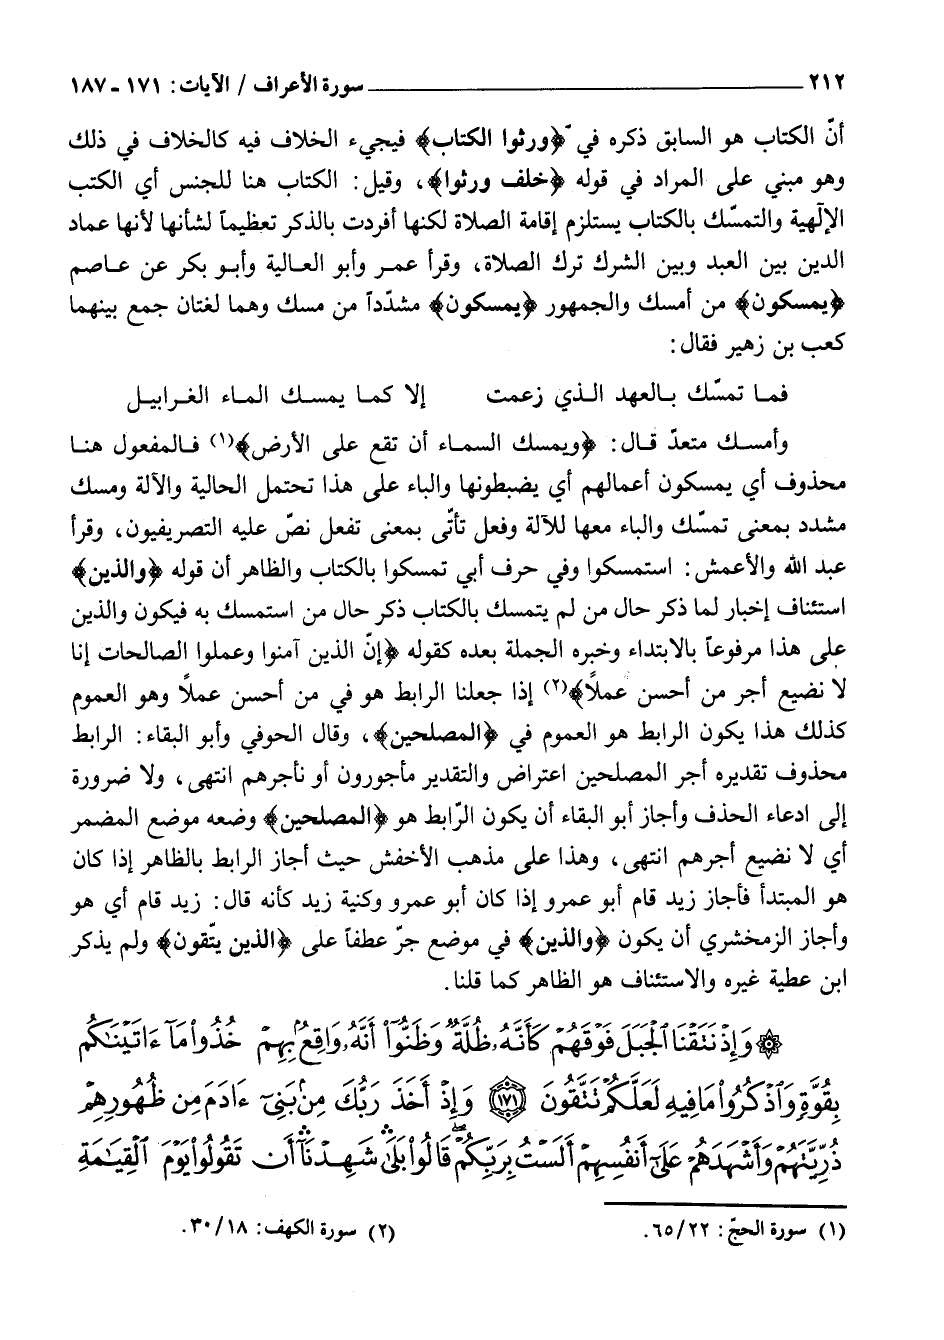 ٢١٢ سورة الأعراف / الآيات: ١٧١ - ١٨٧
أنّ الكتاب هو السابق ذكره في ﴿ورثوا الكتاب﴾ فيجيء الخلاف فيه كالخلاف في ذلك
وهو مبني على المراد في قوله ﴿خلف ورثوا﴾، وقيل: الكتاب هنا للجنس أي الكتب
الإلٓهية والتمسّك بالكتاب يستلزم إقامة الصلاة لكنها أفردت بالذكر تعظيماً لشأنها لأنها عماد
الدين بين العبد وبين الشرك ترك الصلاة، وقرأ عمر وأبو العالية وأبو بكر عن عاصم
﴿يمسكون﴾ من أمسك والجمهور ﴿يمسكون﴾ مشدّداً من مسك وهما لغتان جمع بينهما
كعب بن زهير فقال:
فما تمسّك بالعهد الذي زعمت إلا كما يمسك الماء الغرابيل
وأمسك متعدّ قال: ﴿ويمسك السماء أن تقع على الأرض﴾(١) فالمفعول هنا
محذوف أي يمسكون أعمالهم أي يضبطونها والباء على هذا تحتمل الحالية والآلة ومسك
مشدد بمعنى تمسّك والباء معها للآلة وفعل تأتّي بمعنى تفعل نصّ عليه التصريفيون، وقرأ
عبد الله والأعمش: استمسكوا وفي حرف أبي تمسكوا بالكتاب والظاهر أن قوله ﴿والذين﴾
استئناف إخبار لما ذكر حال من لم يتمسك بالكتاب ذكر حال من استمسك به فيكون والذين
على هذا مرفوعاً بالابتداء وخبره الجملة بعده كقوله ﴿إنّ الذين آمنوا وعملوا الصالحات إنا
لا نضيع أجر من أحسن عملاً﴾(٢) إذا جعلنا الرابط هو في من أحسن عملاً وهو العموم
كذلك هذا يكون الرابط هو العموم في ﴿المصلحين﴾، وقال الحوفي وأبو البقاء: الرابط
محذوف تقديره أجر المصلحين اعتراض والتقدير مأجورون أو نأجرهم انتهى، ولا ضرورة
إلى ادعاء الحذف وأجاز أبو البقاء أن يكون الرّابط هو ﴿المصلحين﴾ وضعه موضع المضمر
أي لا نضيع أجرهم انتهى، وهذا على مذهب الأخفش حيث أجاز الرابط بالظاهر إذا كان
هو المبتدأ فأجاز زيد قام أبو عمرو إذا كان أبو عمرو وكنية زيد كأنه قال: زيد قام أي هو
وأجاز الزمخشري أن يكون ﴿والذين﴾ في موضع جرّ عطفاً على ﴿الذين يتّقون﴾ ولم يذكر
ابن عطية غيره والاستئناف هو الظاهر كما قلنا.
۞ وَإِذْ نَتَقْنَا ٱلْجَبَلَ فَوْقَهُمْ كَأَنَّهُۥ ظُلَّةٌ وَظَنُّوٓا۟ أَنَّهُۥ وَاقِعٌۢ بِهِمْ خُذُوا۟ مَآ ءَاتَيْنَٰكُم
بِقُوَّةٍ وَٱذْكُرُوا۟ مَا فِيهِ لَعَلَّكُمْ نَتَّقُونَ ۝١٧١ وَإِذْ أَخَذَ رَبُّكَ مِنۢ بَنِىٓ ءَادَمَ مِن ظُهُورِهِمْ
ذُرِّيَّتَهُمْ وَأَشْهَدَهُمْ عَلَىٰٓ أَنفُسِهِمْ أَلَسْتُ بِرَبِّكُمْ ۖ قَالُوا۟ بَلَىٰ ۛ شَهِدْنَآ ۛ أَن تَقُولُوا۟ يَوْمَ ٱلْقِيَٰمَةِ
(١) سورة الحجّ: ٢٢/ ٦٥. (٢) سورة الكهف: ١٨/ ٣٠.